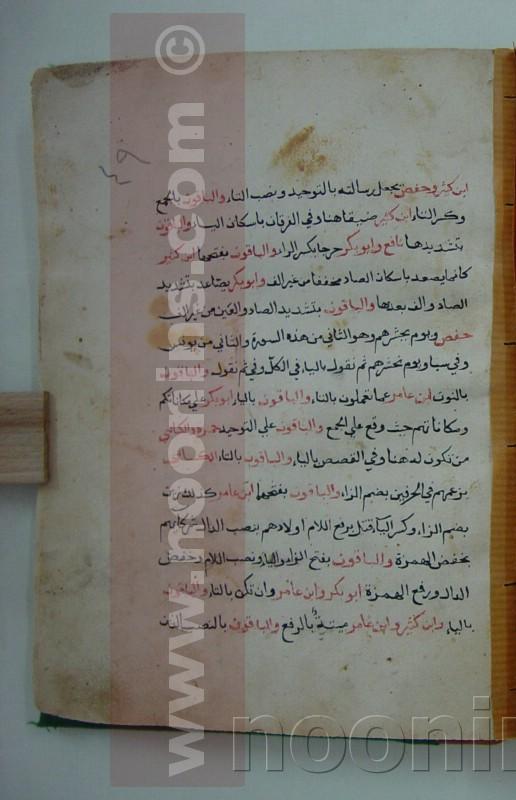 ٤٩
ابن كثير وحفص يجعل رسالته بالتوحيد ونصب التاء والباقون بالجمع
وكسر التاء ابن كثير ضيقا هنا وفي الفرقان باسكان الياء والباقون
بتشديدها نافع وابو بكر حرجا بكسر الراء والباقون بفتحها ابن كثير
كانما يصعد باسكان الصاد مخففا من غير الف وابو بكر يصاعد بتشديد
الصاد والف بعدها والباقون بتشديد الصاد والعين من غير الف
حفص ويوم يحشرهم وهو الثاني من هذه السورة والثاني من يونس
وفي سبا ويوم نحشرهم ثم نقول بالياء في الكل وفي ثم نقول والباقون
بالنون ابن عامر عما تعملون بالتاء والباقون بالياء ابو بكر علي مكاناتكم
ومكاناتهم حيث وقع علي الجمع والباقون علي التوحيد حمزة والكسائي
من تكون له هنا وفي القصص بالياء والباقون بالتاء الكسائي
بزعمهم في الحرفين بضم الزاء والباقون بفتحها ابن عامر وكذلك زين
بضم الزاء وكسر الياء قتل برفع اللام اولادهم بنصب الدال شركائهم
بخفض الهمزة والباقون بفتح الزاء والياء ونصب اللام وخفض
الدال ورفع الهمزة ابو بكر وابن عامر وان تكن بالتاء والباقون
بالياء وابن كثير وابن عامر ميتة بالرفع والباقون بالنصب
www.noorlms.com ©
noorl